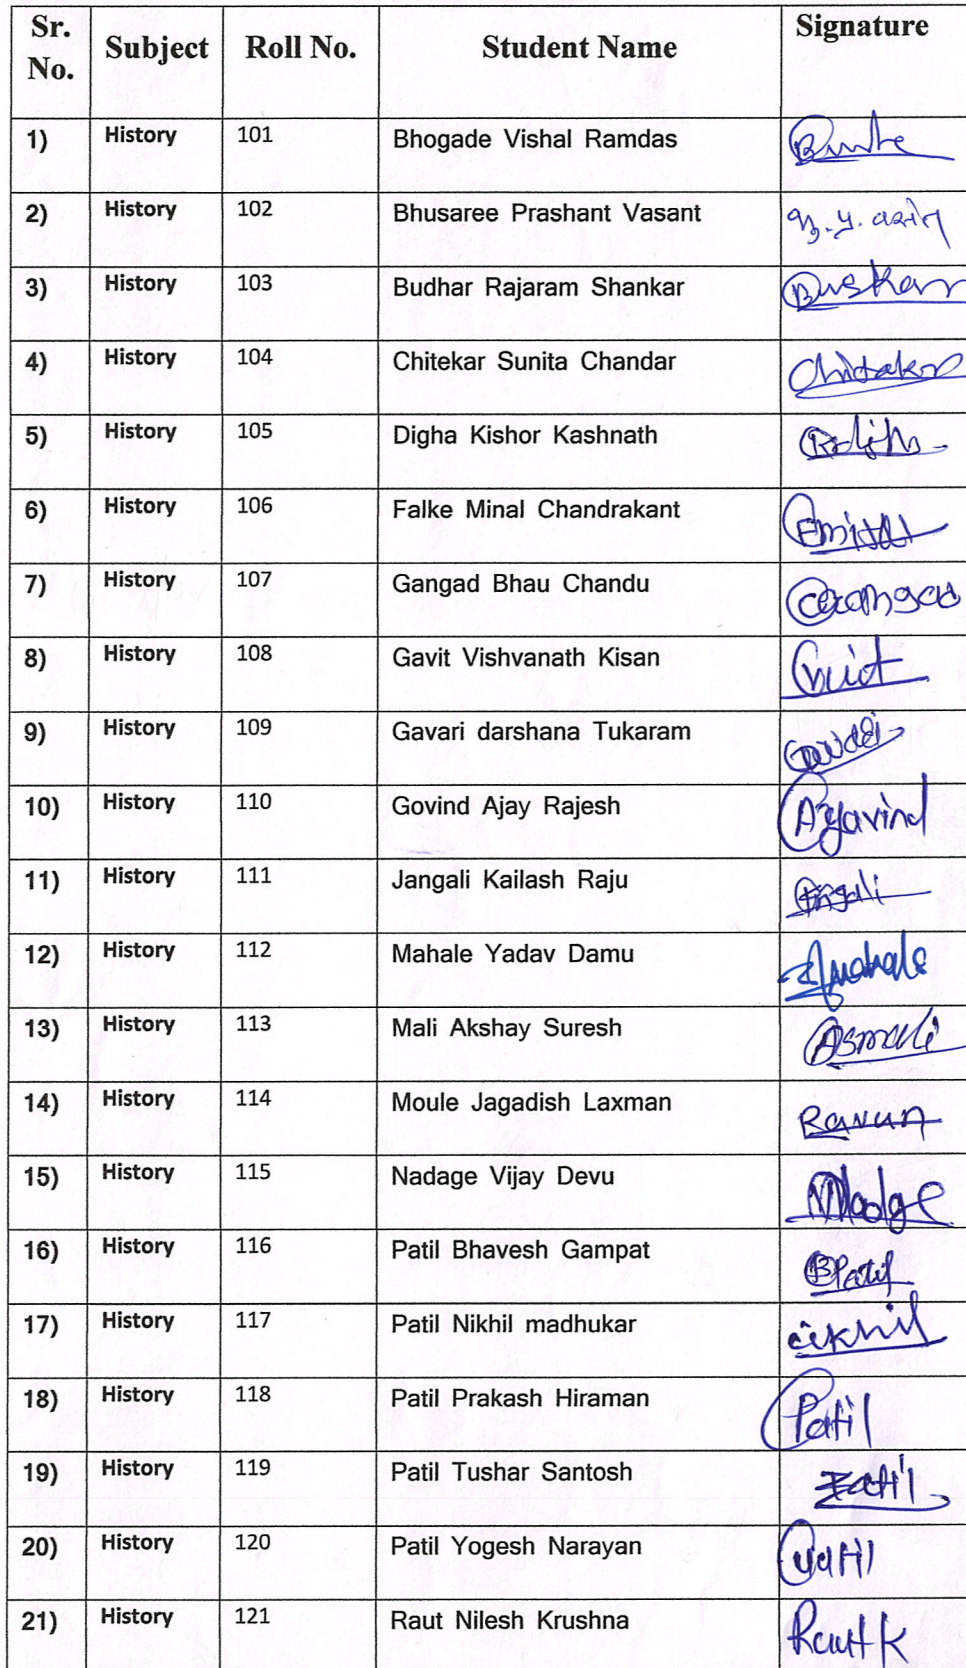 Sr. No. Subject Roll No. Student Name Signature
1) History 101 Bhogade Vishal Ramdas
2) History 102 Bhusaree Prashant Vasant
3) History 103 Budhar Rajaram Shankar
4) History 104 Chitekar Sunita Chandar
5) History 105 Digha Kishor Kashnath
6) History 106 Falke Minal Chandrakant
7) History 107 Gangad Bhau Chandu
8) History 108 Gavit Vishvanath Kisan
9) History 109 Gavari darshana Tukaram
10) History 110 Govind Ajay Rajesh
11) History 111 Jangali Kailash Raju
12) History 112 Mahale Yadav Damu
13) History 113 Mali Akshay Suresh Asmali
14) History 114 Moule Jagadish Laxman
15) History 115 Nadage Vijay Devu
16) History 116 Patil Bhavesh Gampat BPatil
17) History 117 Patil Nikhil madhukar
18) History 118 Patil Prakash Hiraman Patil
19) History 119 Patil Tushar Santosh
20) History 120 Patil Yogesh Narayan
21) History 121 Raut Nilesh Krushna Raut K